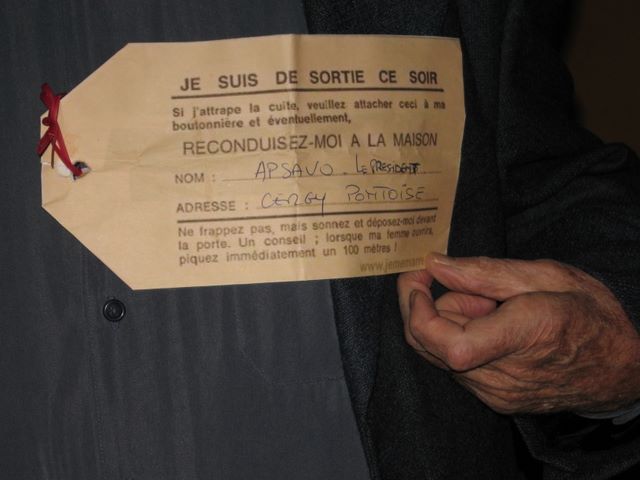 JE SUIS DE SORTIE CE SOIR
Si j'attrape la cuite, veuillez attacher ceci à ma
boutonnière et éventuellement,
RECONDUISEZ-MOI A LA MAISON
NOM : APSAVO - LE PRESIDENT
ADRESSE : CERGY PONTOISE
Ne frappez pas, mais sonnez et déposez-moi devant
la porte. Un conseil ; lorsque ma femme ouvrira,
piquez immédiatement un 100 mètres !